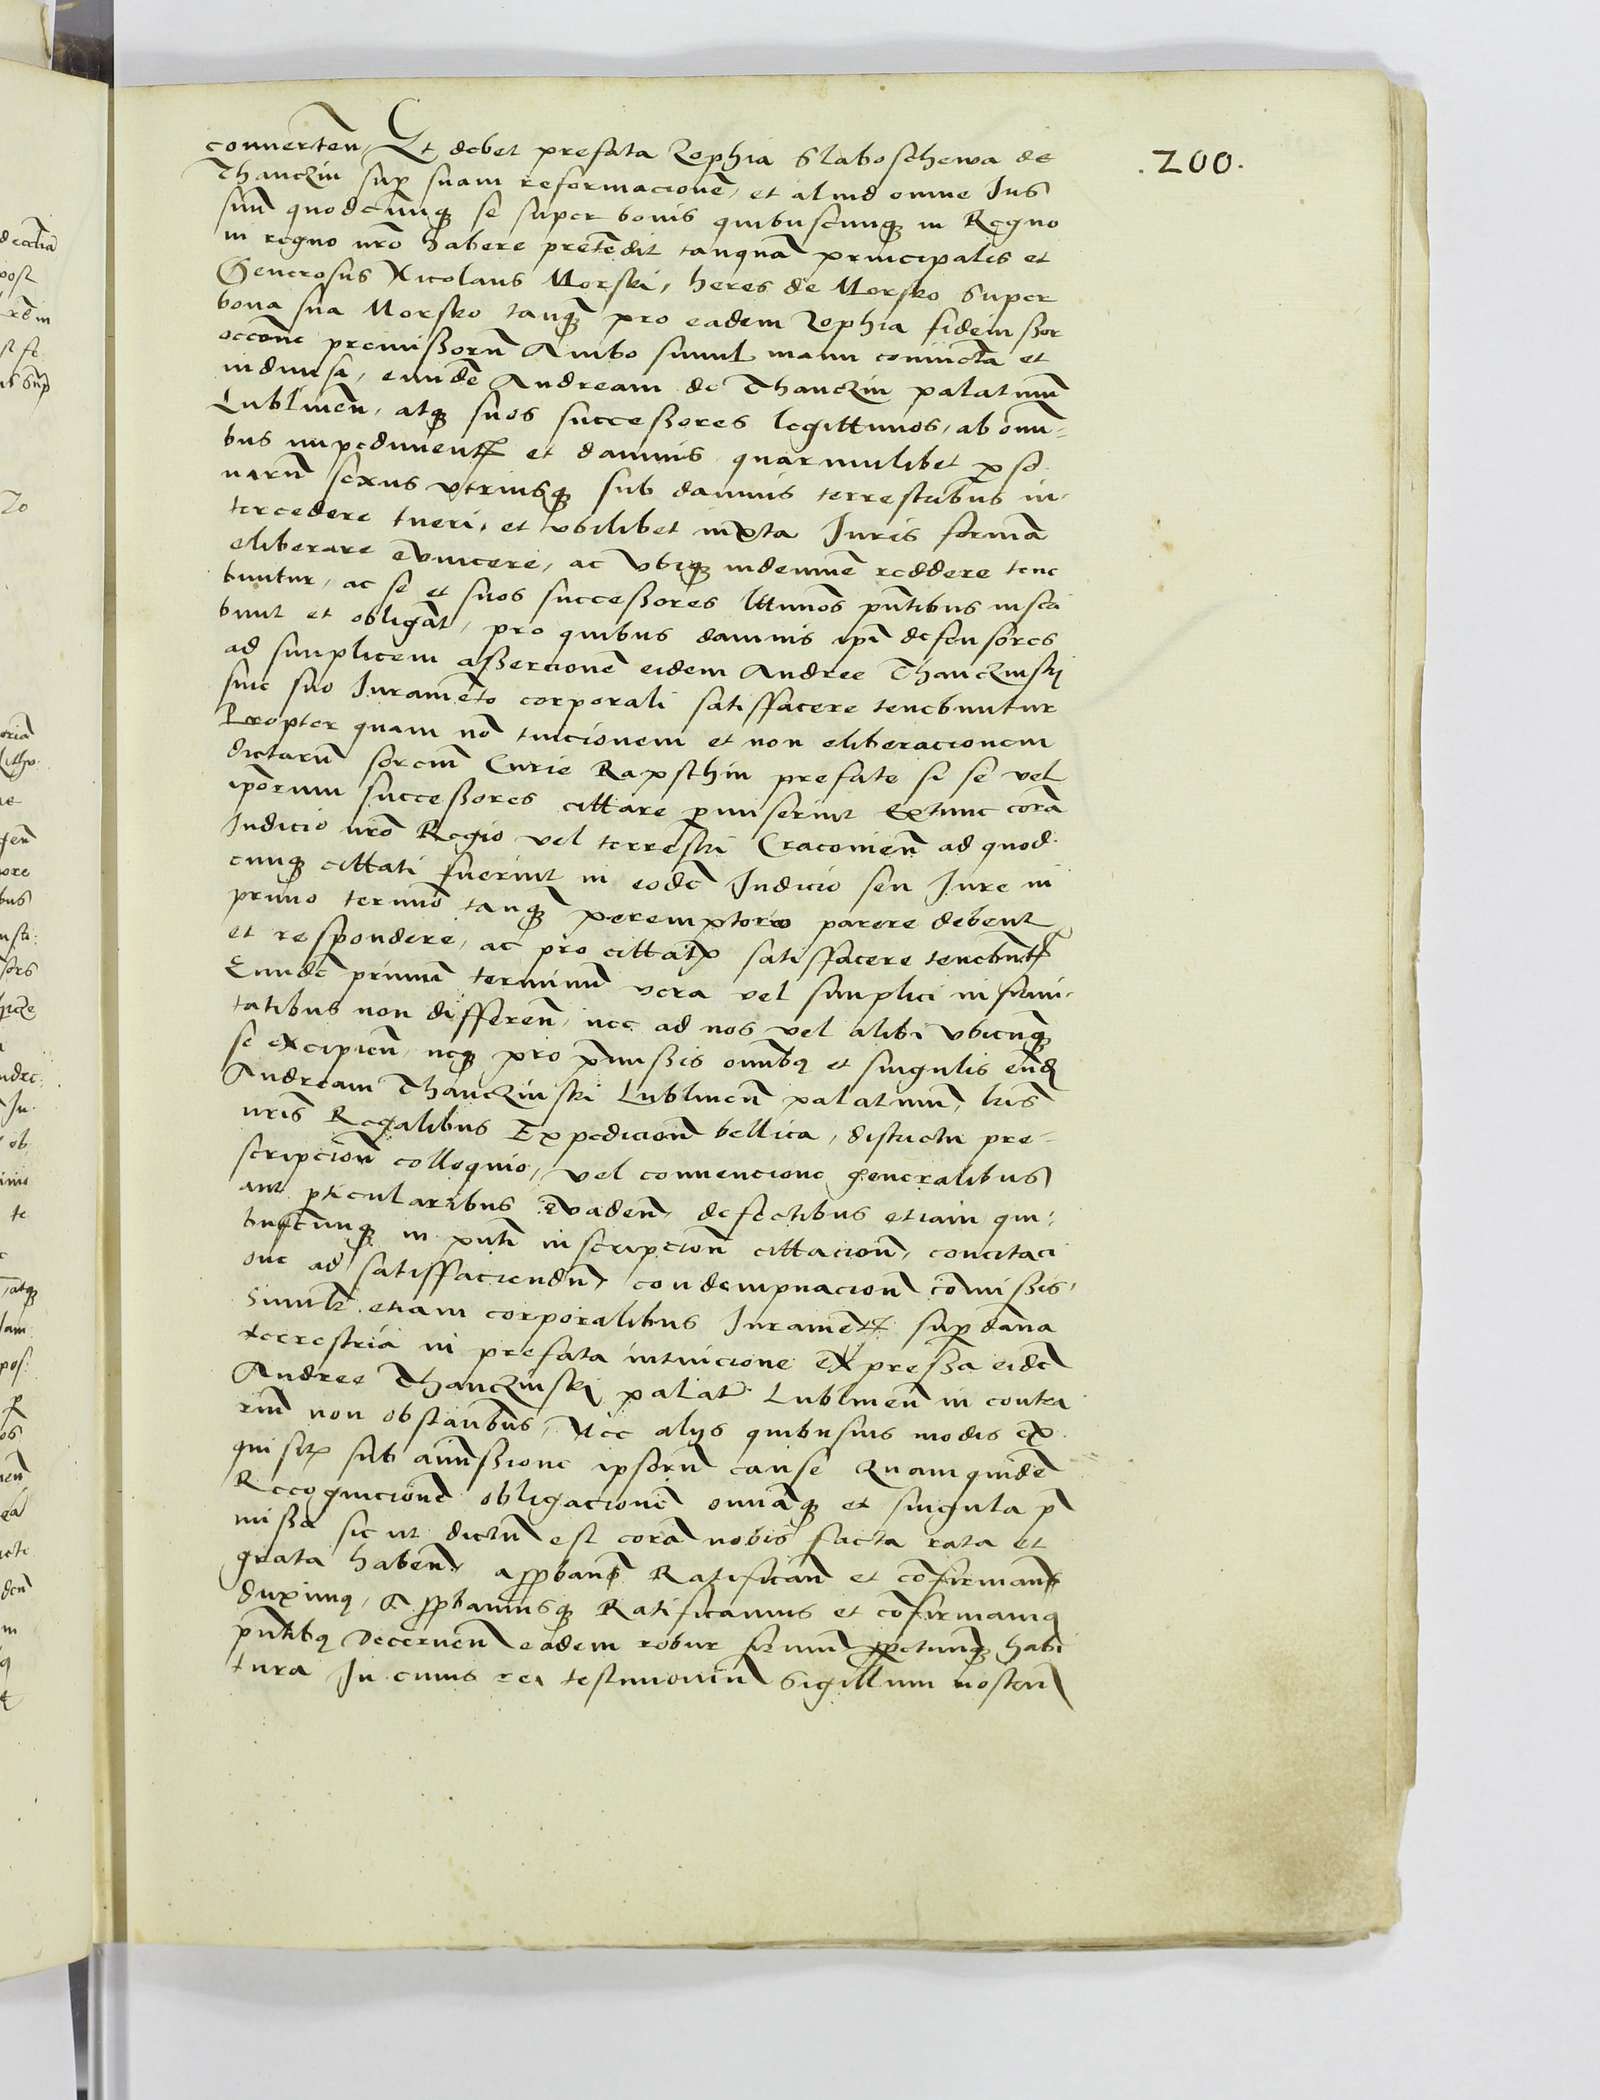 .200.
conuerten, Et debet prefata Zophia Slaboschewa de
Thanczin sup suam reformacionē, et aliud omne Ius
suū quodcunq se super bonis quibuscunq in Regno
in regno nrō habere pretēdit tanquā principalis et
Generosus Nicolaus Morski, heres de Morsko super
bona sua Morsko tanq pro eadem Zophia fideiussor
occōne premissorū Ambo simul manu coniūcta et
indiuisa, eundē Andream de Thanczin palatinū
Lublineñ, atq suos successores legittimos, ab omni=
bus impediment et damnis quarumlibet perso
narū sexus vtriusq sub damnis terrestribus in-
tercedere tueri, et vbilibet iuxta Iuris formā
eliberare euincere, ac vbiq indemnē reddere tene
buntur, ac se et suos successores lttimos pntibus inscri
bunt et obligāt, pro quibus damnis ipi defensores
ad simplicem assercionē eidem Andree Thanczinski
sine suo Iuramēto corporali satisfacere tenebuntur
Propter quam nō tuicionem et non eliberacionem
dictarū sorciū Curie Rapschin prefate si se vel
iporum successores cittare pmiserint Extunc corā
Iudicio nrō Regio vel terrestri Cracouieñ ad quod
cunq cittati fuerint in eodē Iudicio seu Iure in
primo termino tanq peremptorio parere debent
et respondere, ac pro cittatis satisfacere tenebūt
Eundē primū terminū vera vel simplici infirmi-
tatibus non differeñ, nec ad nos vel alibi vbicunq
se excipieñ, neq pro pmissis omībq et singulis eūdē
Andream Thanczinski Lublineñ palatinū, lris
nris Regalibus Expedicioñ bellica, districtu pre-
scripcioñ colloquio, vel conuencione generalibus
aut pticularibus euadeñ, defectibus etiam qui-
buscunq in pnti inscripcioñ cittacioñ, concitaci
one ad satisfaciendū condempnacioñ cōmissis,
Simlr etiam corporalibus Iuramēt sup dāna
terrestria in prefata intuicione expressa eidē
Andree Thanczinski palat Lublineñ in contra
riū non obstantibus, Nec alys quibusuis modis ex
quisitis sub amissione ipsorū cause Quamquidē
Recognicionē obligacionē omiāq et singula p
missa sic ut dictū est corā nobis facta rata et
grata habeñ, approbanđ Ratificanđ et cōfirmanđ
duximq, Approbamusq Ratificamus et cōfirmamq
pntibq Decerneñ eadem robur firmū perpetuumq habi
tura In cuius rei testimoniū Sigillum nostrū